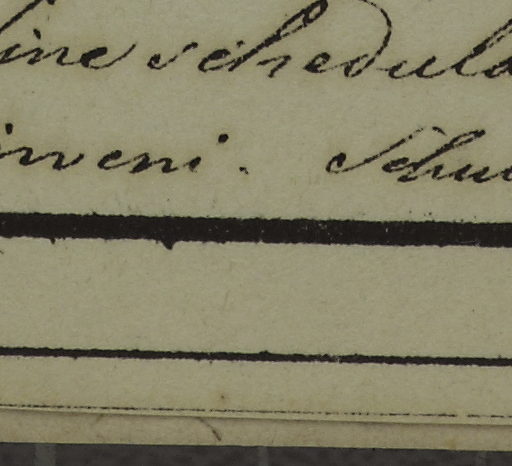 ine schedula
inveni. Schu